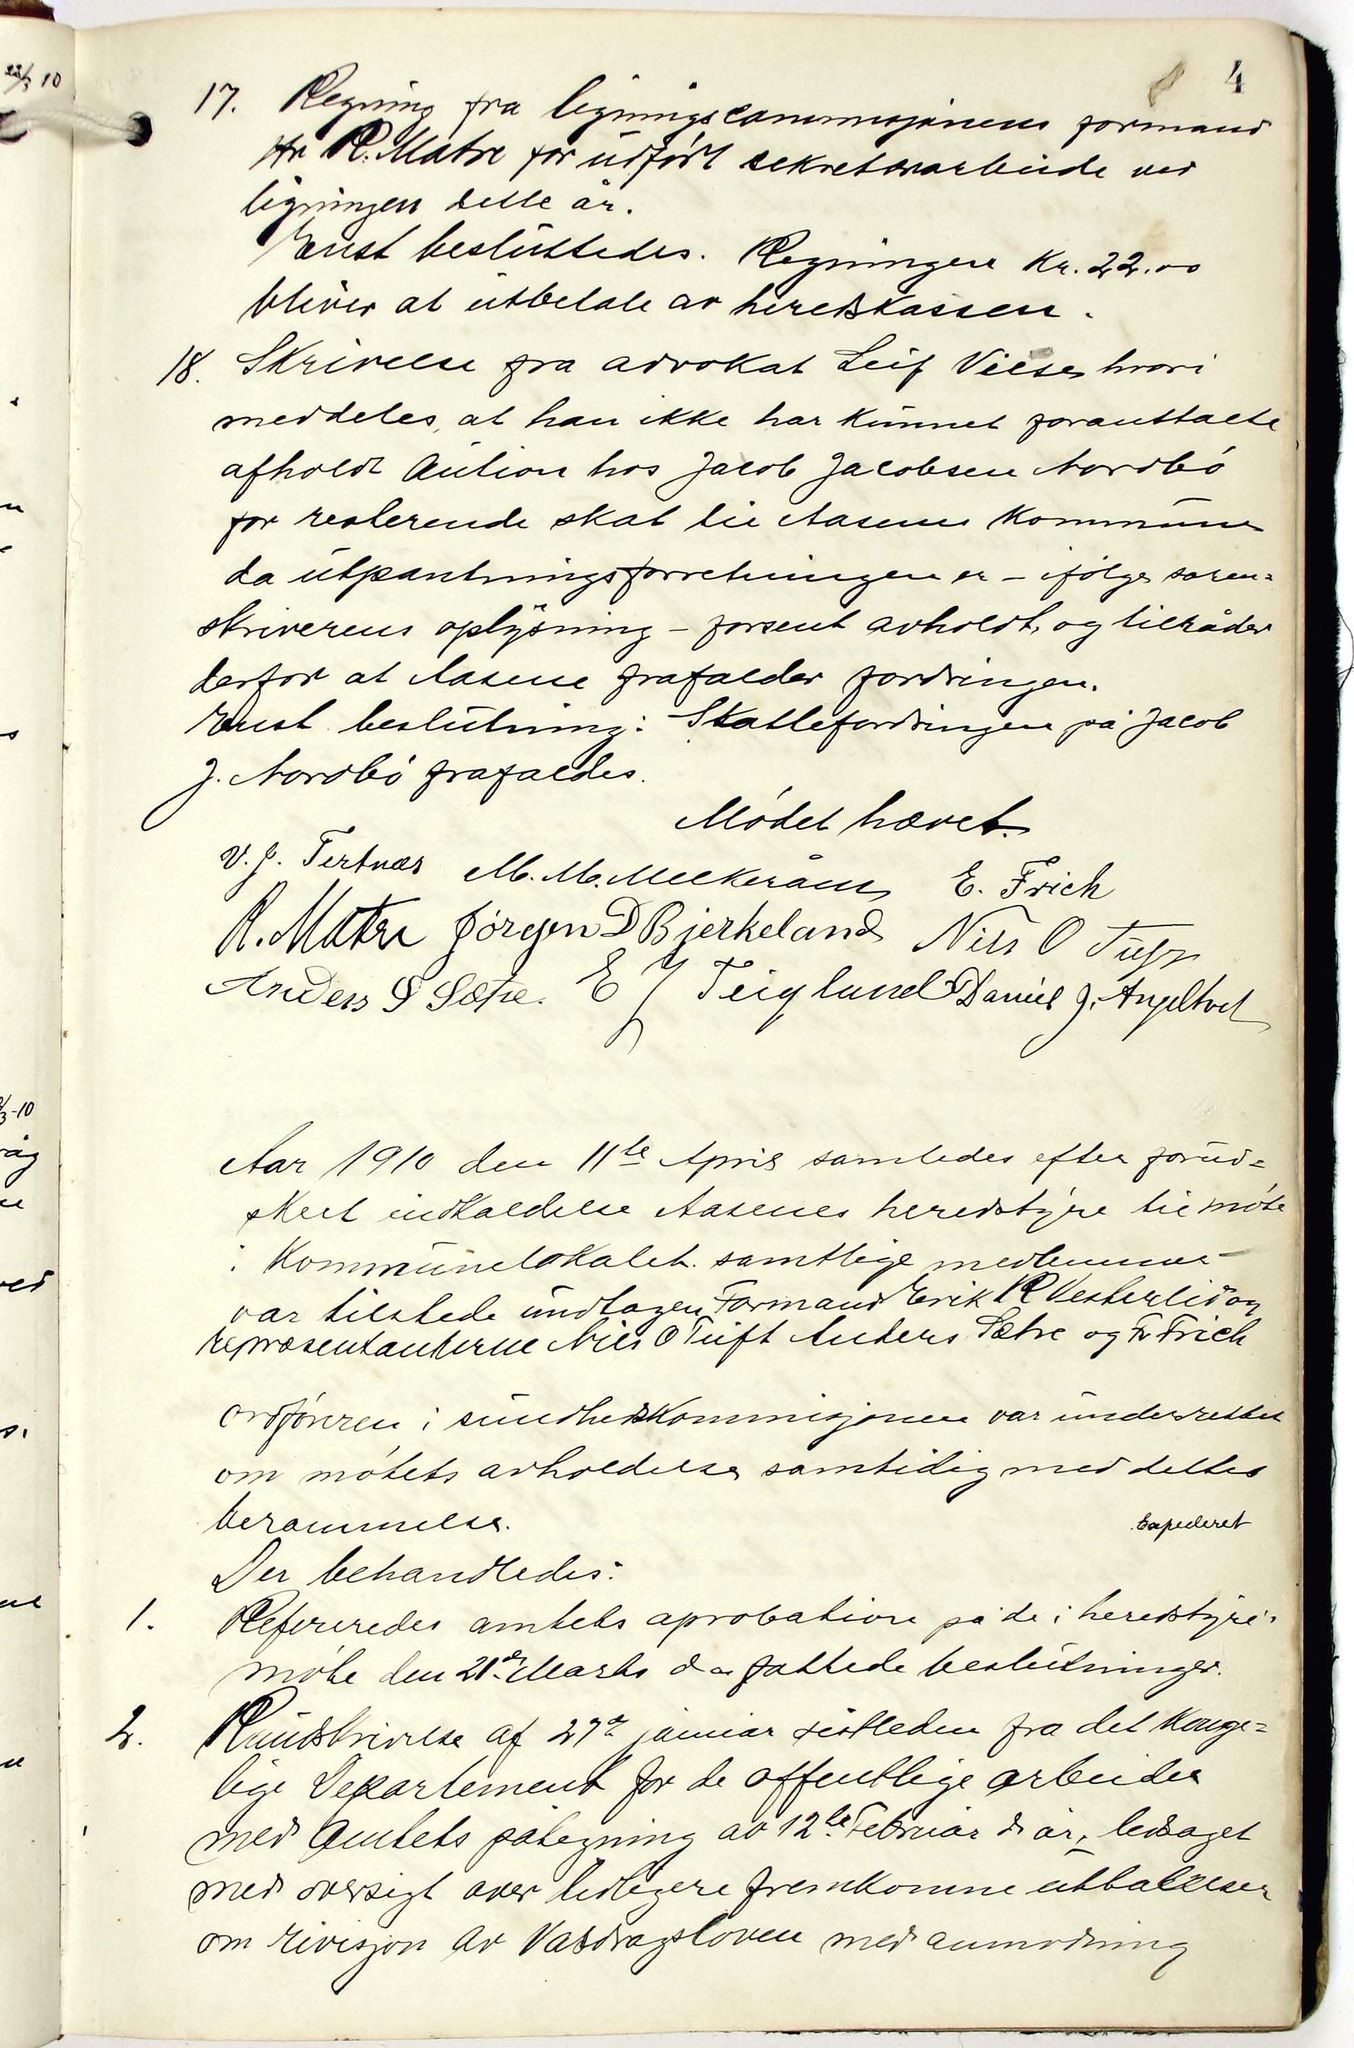 4
17. Regning fra ligningscommisjonens formand
Hr R. Matre for udført sekretærarbeide ved
ligningen dette år.
Enst besluttedes. Regningen Kr. 22.00
bliver at utbetale av heredskassen.
18. Skrivelse fra advokat Leif hvori
meddeles, at han ikke har kunnet foranstalte
afholdt Aution hos Jacob Jacobsen Nordbö
for resterende skat til Aasene Kommune
da utpantningsforretningen er - ifölge soren=
skriverens oplysning - forsent avholdt, og tilråder
derfor at Aasene frafalder fordringen.
Enst beslutning: Skattefordringen på Jacob
J. Nordbö frafaldes.
Mödet hævet.
V. J. Tertnæs M. M. Mellkeråen E. Frich
R. Matre Jørgen D Bjerkeland Nils O Tuft
Anders S Sætre. E J Teiglund Daniel J. Angeltvet
Aar 1910 den 11te April samledes efter forud=
skeet indkaldelse Aasenes heredstyre til möte
i Kommunelokalet. samtlige medlemmer
var tilstede undtagen Formand Erik R Vesterlid og
repræsentanterne Nils O Tuft Anders Sætre og Fr Frich
Ordföreren i sundhedskommisjonen var underrettet
om mötets avholdelse samtidig med dettes
berammelse.
Expederet
Der behandledes:
1. Refereredes amtets aprobation på de i heredstyre=
möte den 21de Marts d a fattede beslutninger.
2. Rundskrivelse af 27de januar sistleden fra det Konge=
lige Departement for de offentlige arbeider
med Amtets påtegning av 12te Februar d. år, ledsaget
med oversigt over tidligere fremkomne utbalelser
om revisjon av Vasdragsloven med anmodning